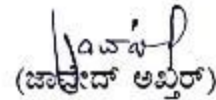 (ಜಾವೇದ್ ಅಖ್ತರ್)